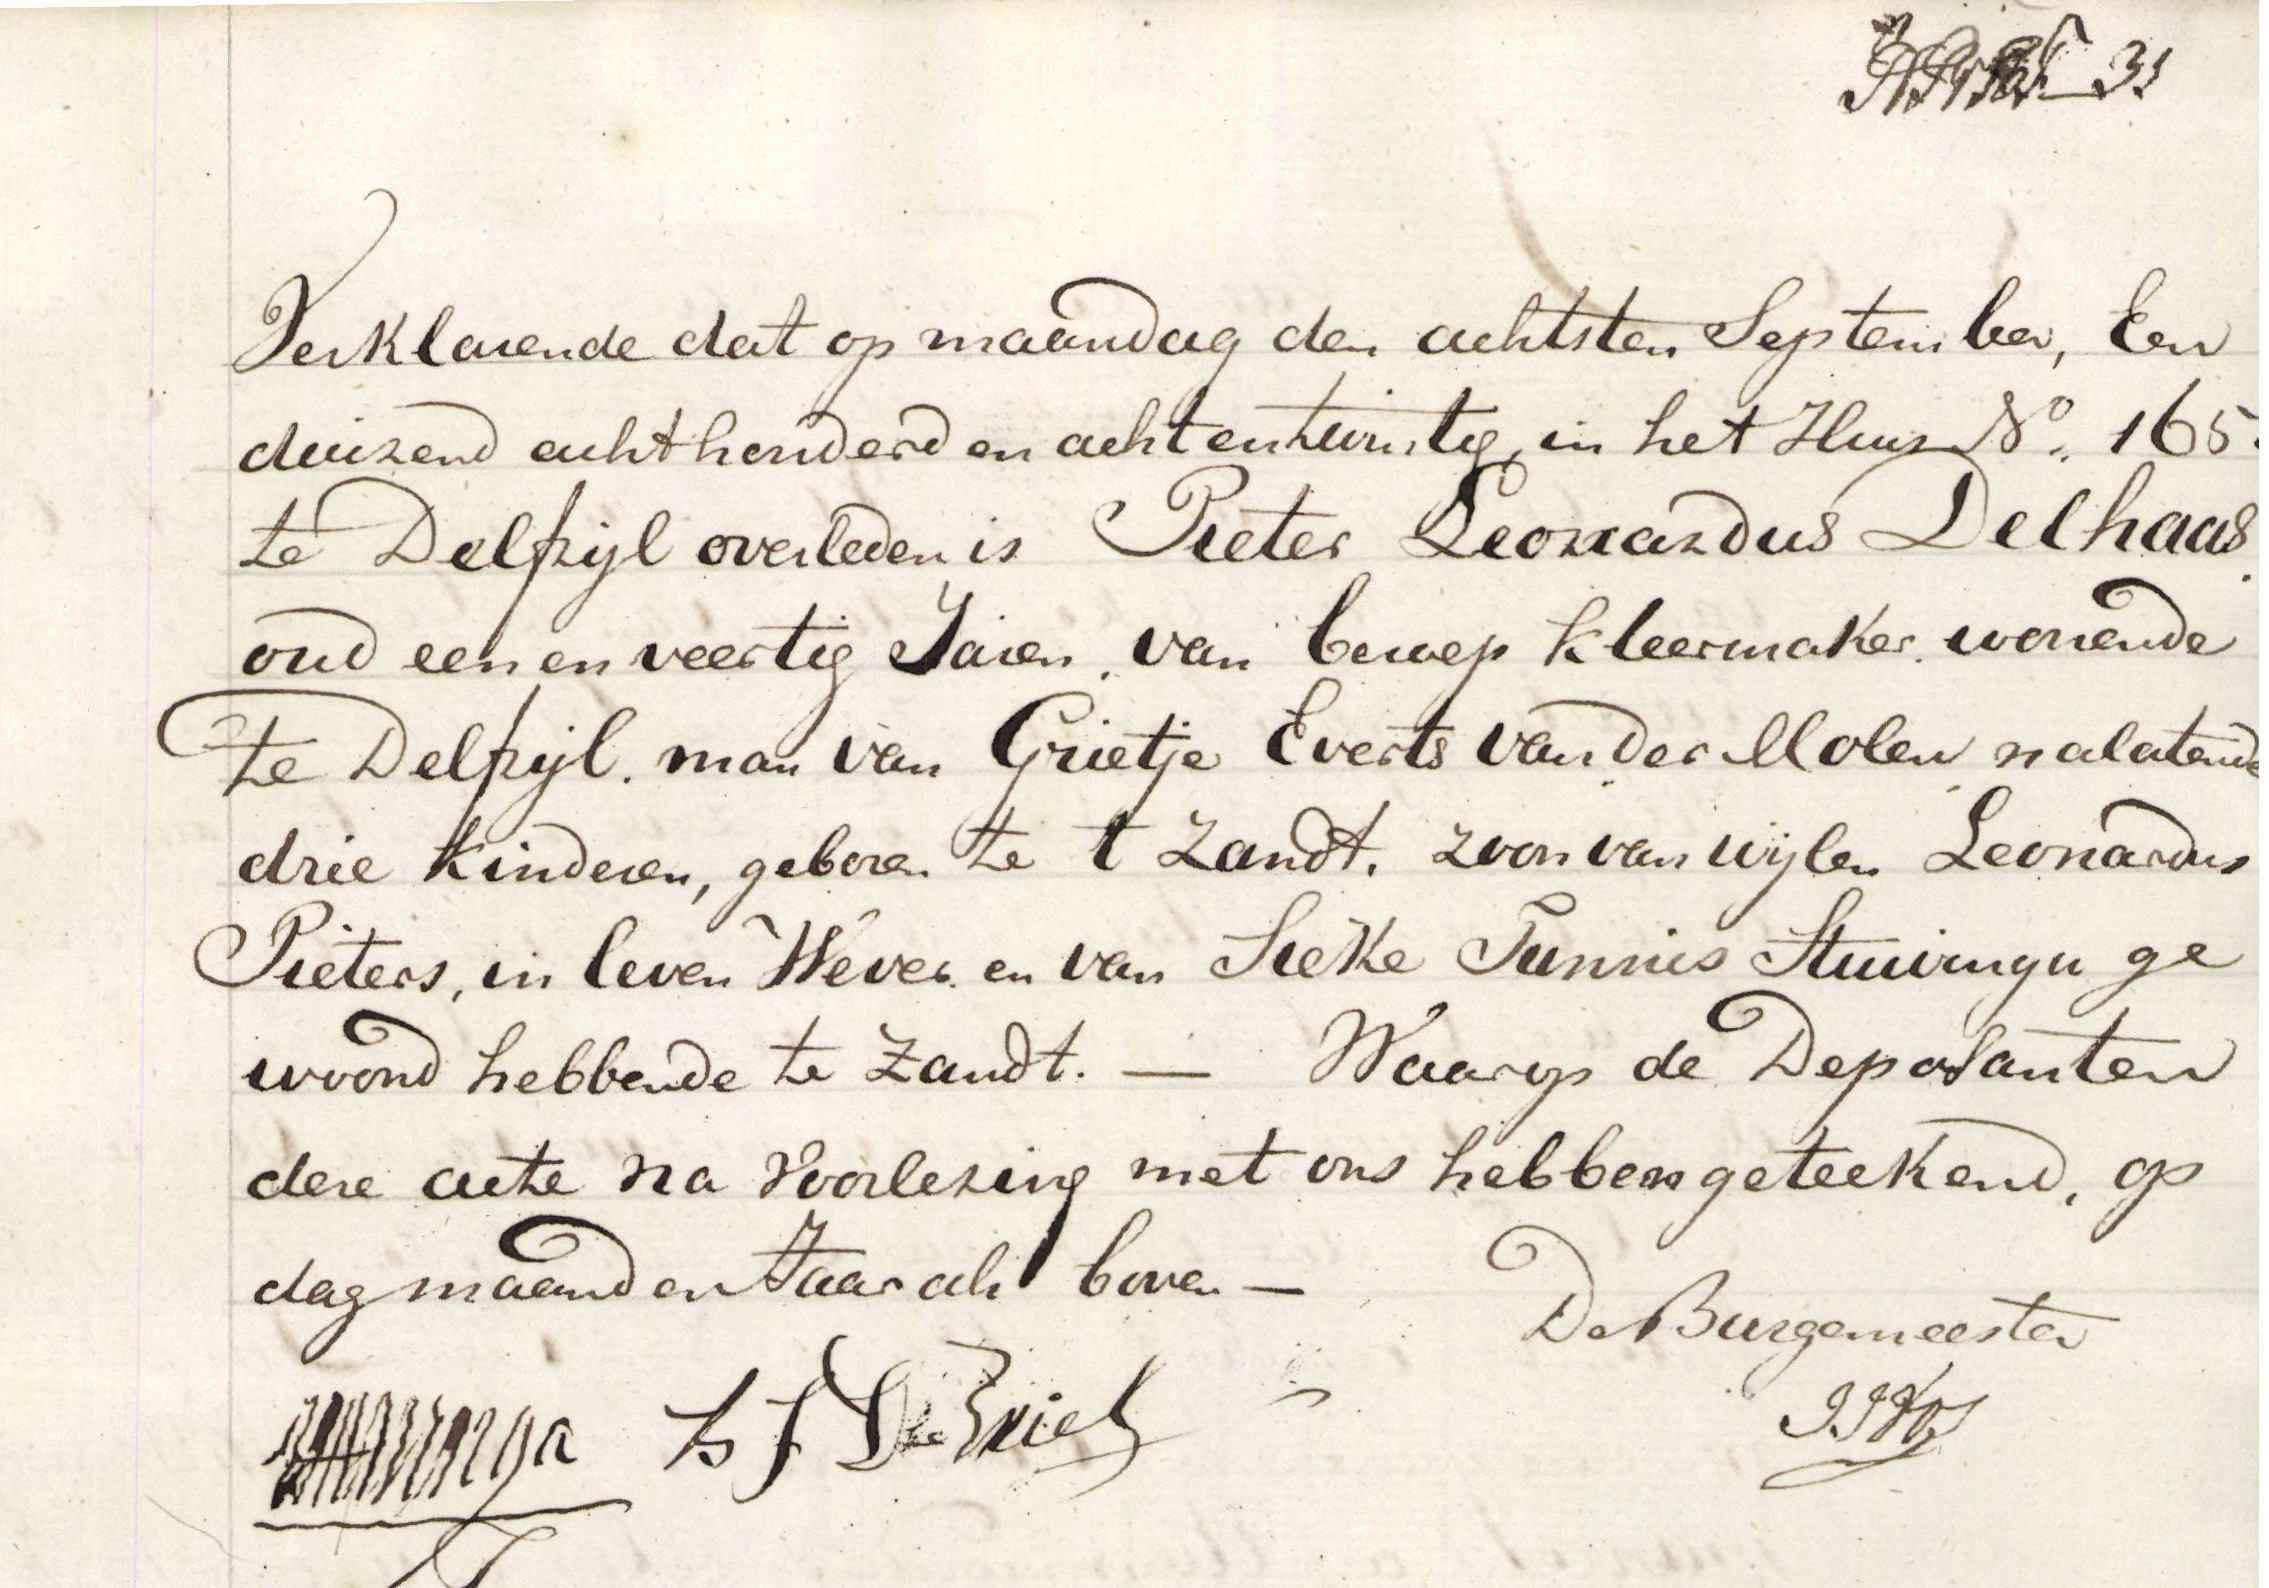 31
Verklarende dat op maandag den achtsten September, Een
duizend achthonderd en achtentwintig, in het Huis No. 165.
te Delfzijl overleden is Pieter Leonardus Delhaas
oud een en veertig Jaren, van beroep kleermaker. wonende
te Delfzijl. man van Grietje Everts van der Molen nalatende
drie kinderen, geboren te t Zandt. zoon van wijlen Leonardus
Pieters, in leven Wever en van Sieke Tunnis Stuivinga ge
woond hebbende te Zandt. — Waarop de Deposanten
deze acte na voorlezing met ons hebben geteekend, op
dag maand en Jaar als boven —
De Burgemeester
De Vriels